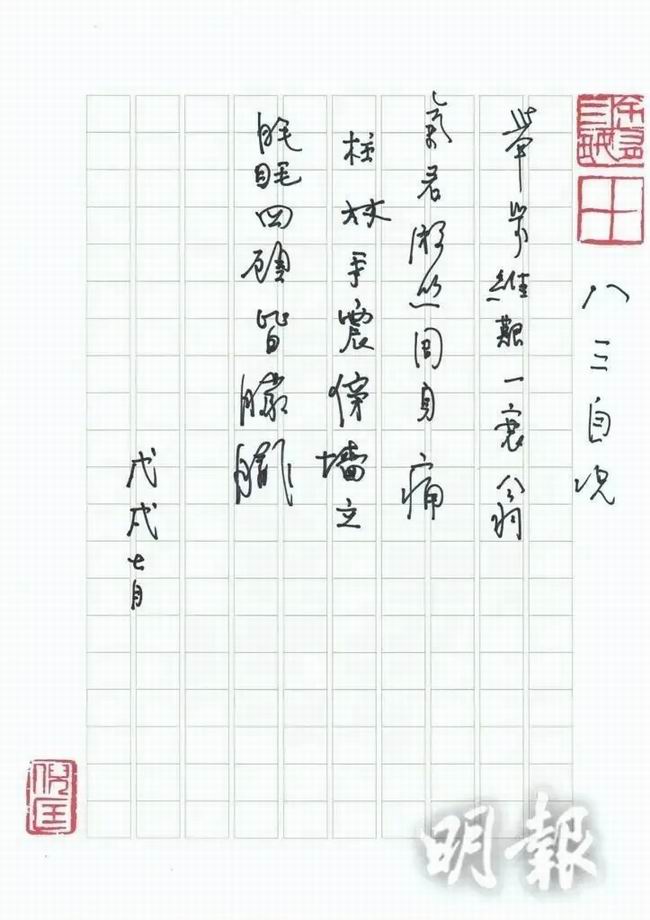 八三自况
舉步維艱一衰翁
氣若游絲周身痛
柱杖手震傍墻立
眊眊四顧皆朦朧
戊戌七月
倪匡
明報